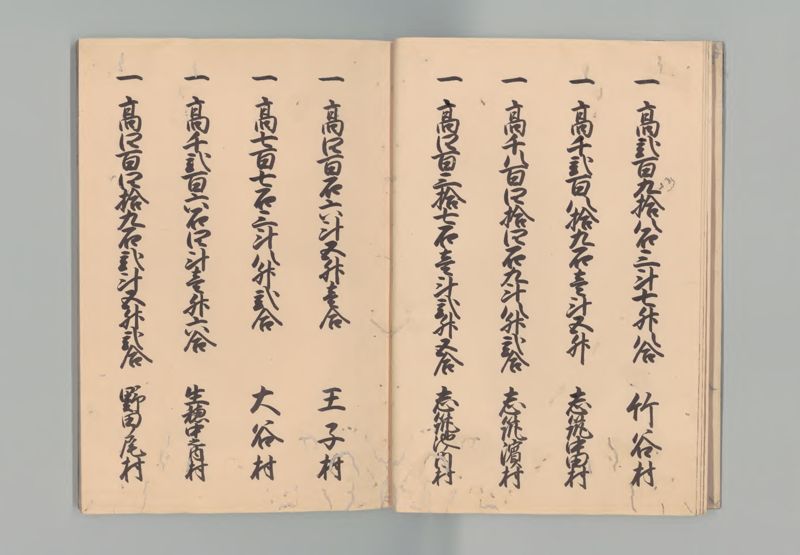 一 高弐百九拾八石三斗七升八合 竹谷村
一 高千弐百八拾九石壱斗五升 志筑中田村
一 高千八百四拾四石九斗八升弐合 志筑濱村
一 高四百三拾七石壱斗弐升五合 志筑池之内村
一 高四百石六斗五升壱合 王子村
一 高七百七石三斗八升弐合 大谷村
一 高千弐百六石四斗壱升六合 生穂中之内村
一 高四百四拾九石弐斗五升弐合 野田尾村